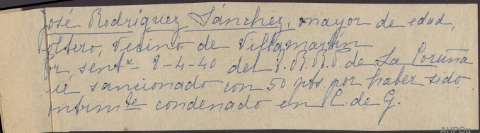 José Rodríguez Sánchez, mayor de edad,
soltero, vecino de Villamartín
Por sent.ª 8-4-40 del T.R.R.P. de La Coruña
fué sancionado con 50 pts por haber sido
condenado en C. de G.